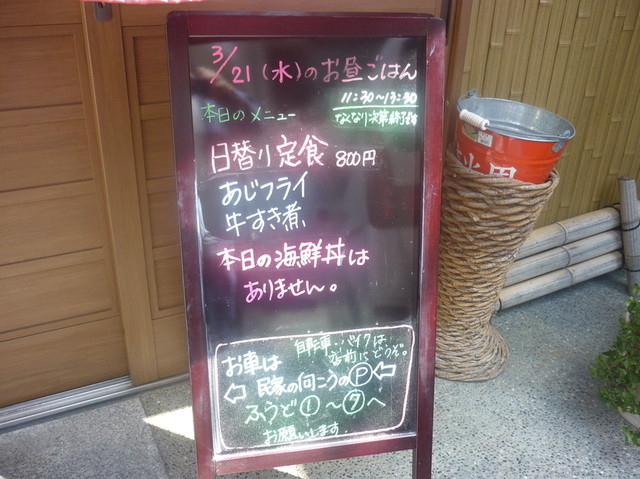 3/21(水)のお昼ごはん
11:30~13:30
なくなり次第終了です
本日のメニュー
日替り定食 800円
あじフライ
牛すき煮
本日の海鮮丼は
ありません。
自転車・バイクは
店前にどうぞ。
お車は
⇦ 民家の向こうのⓅ⇦
ふうど①~⑦へ
お願いします
用